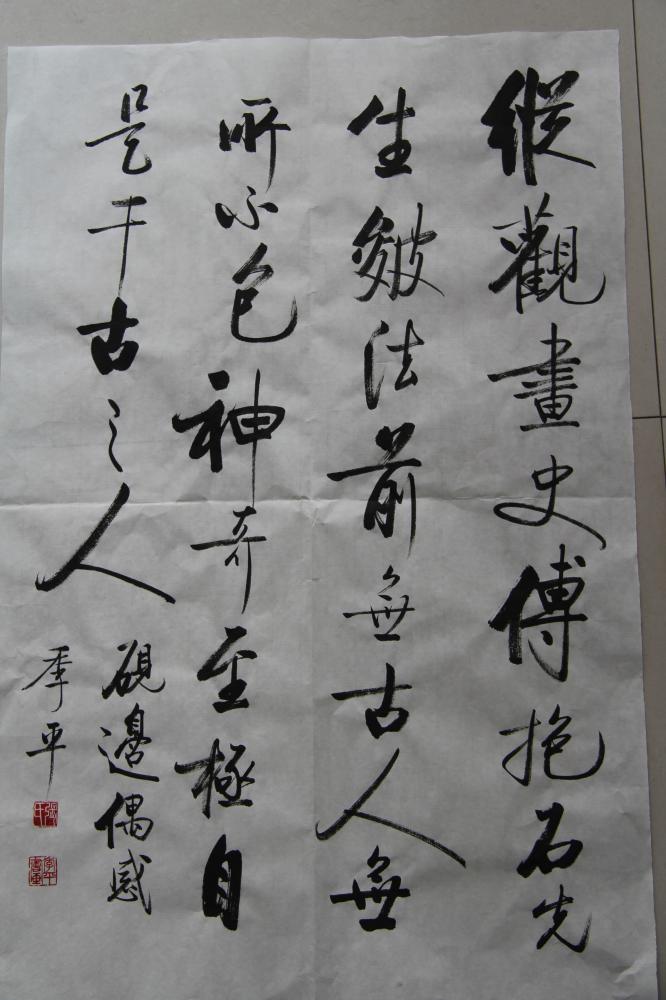 縱觀畫史傅抱石先
生皴法前無古人無
所不包神奇至極自
是千古之人
硯邊偶感
季平